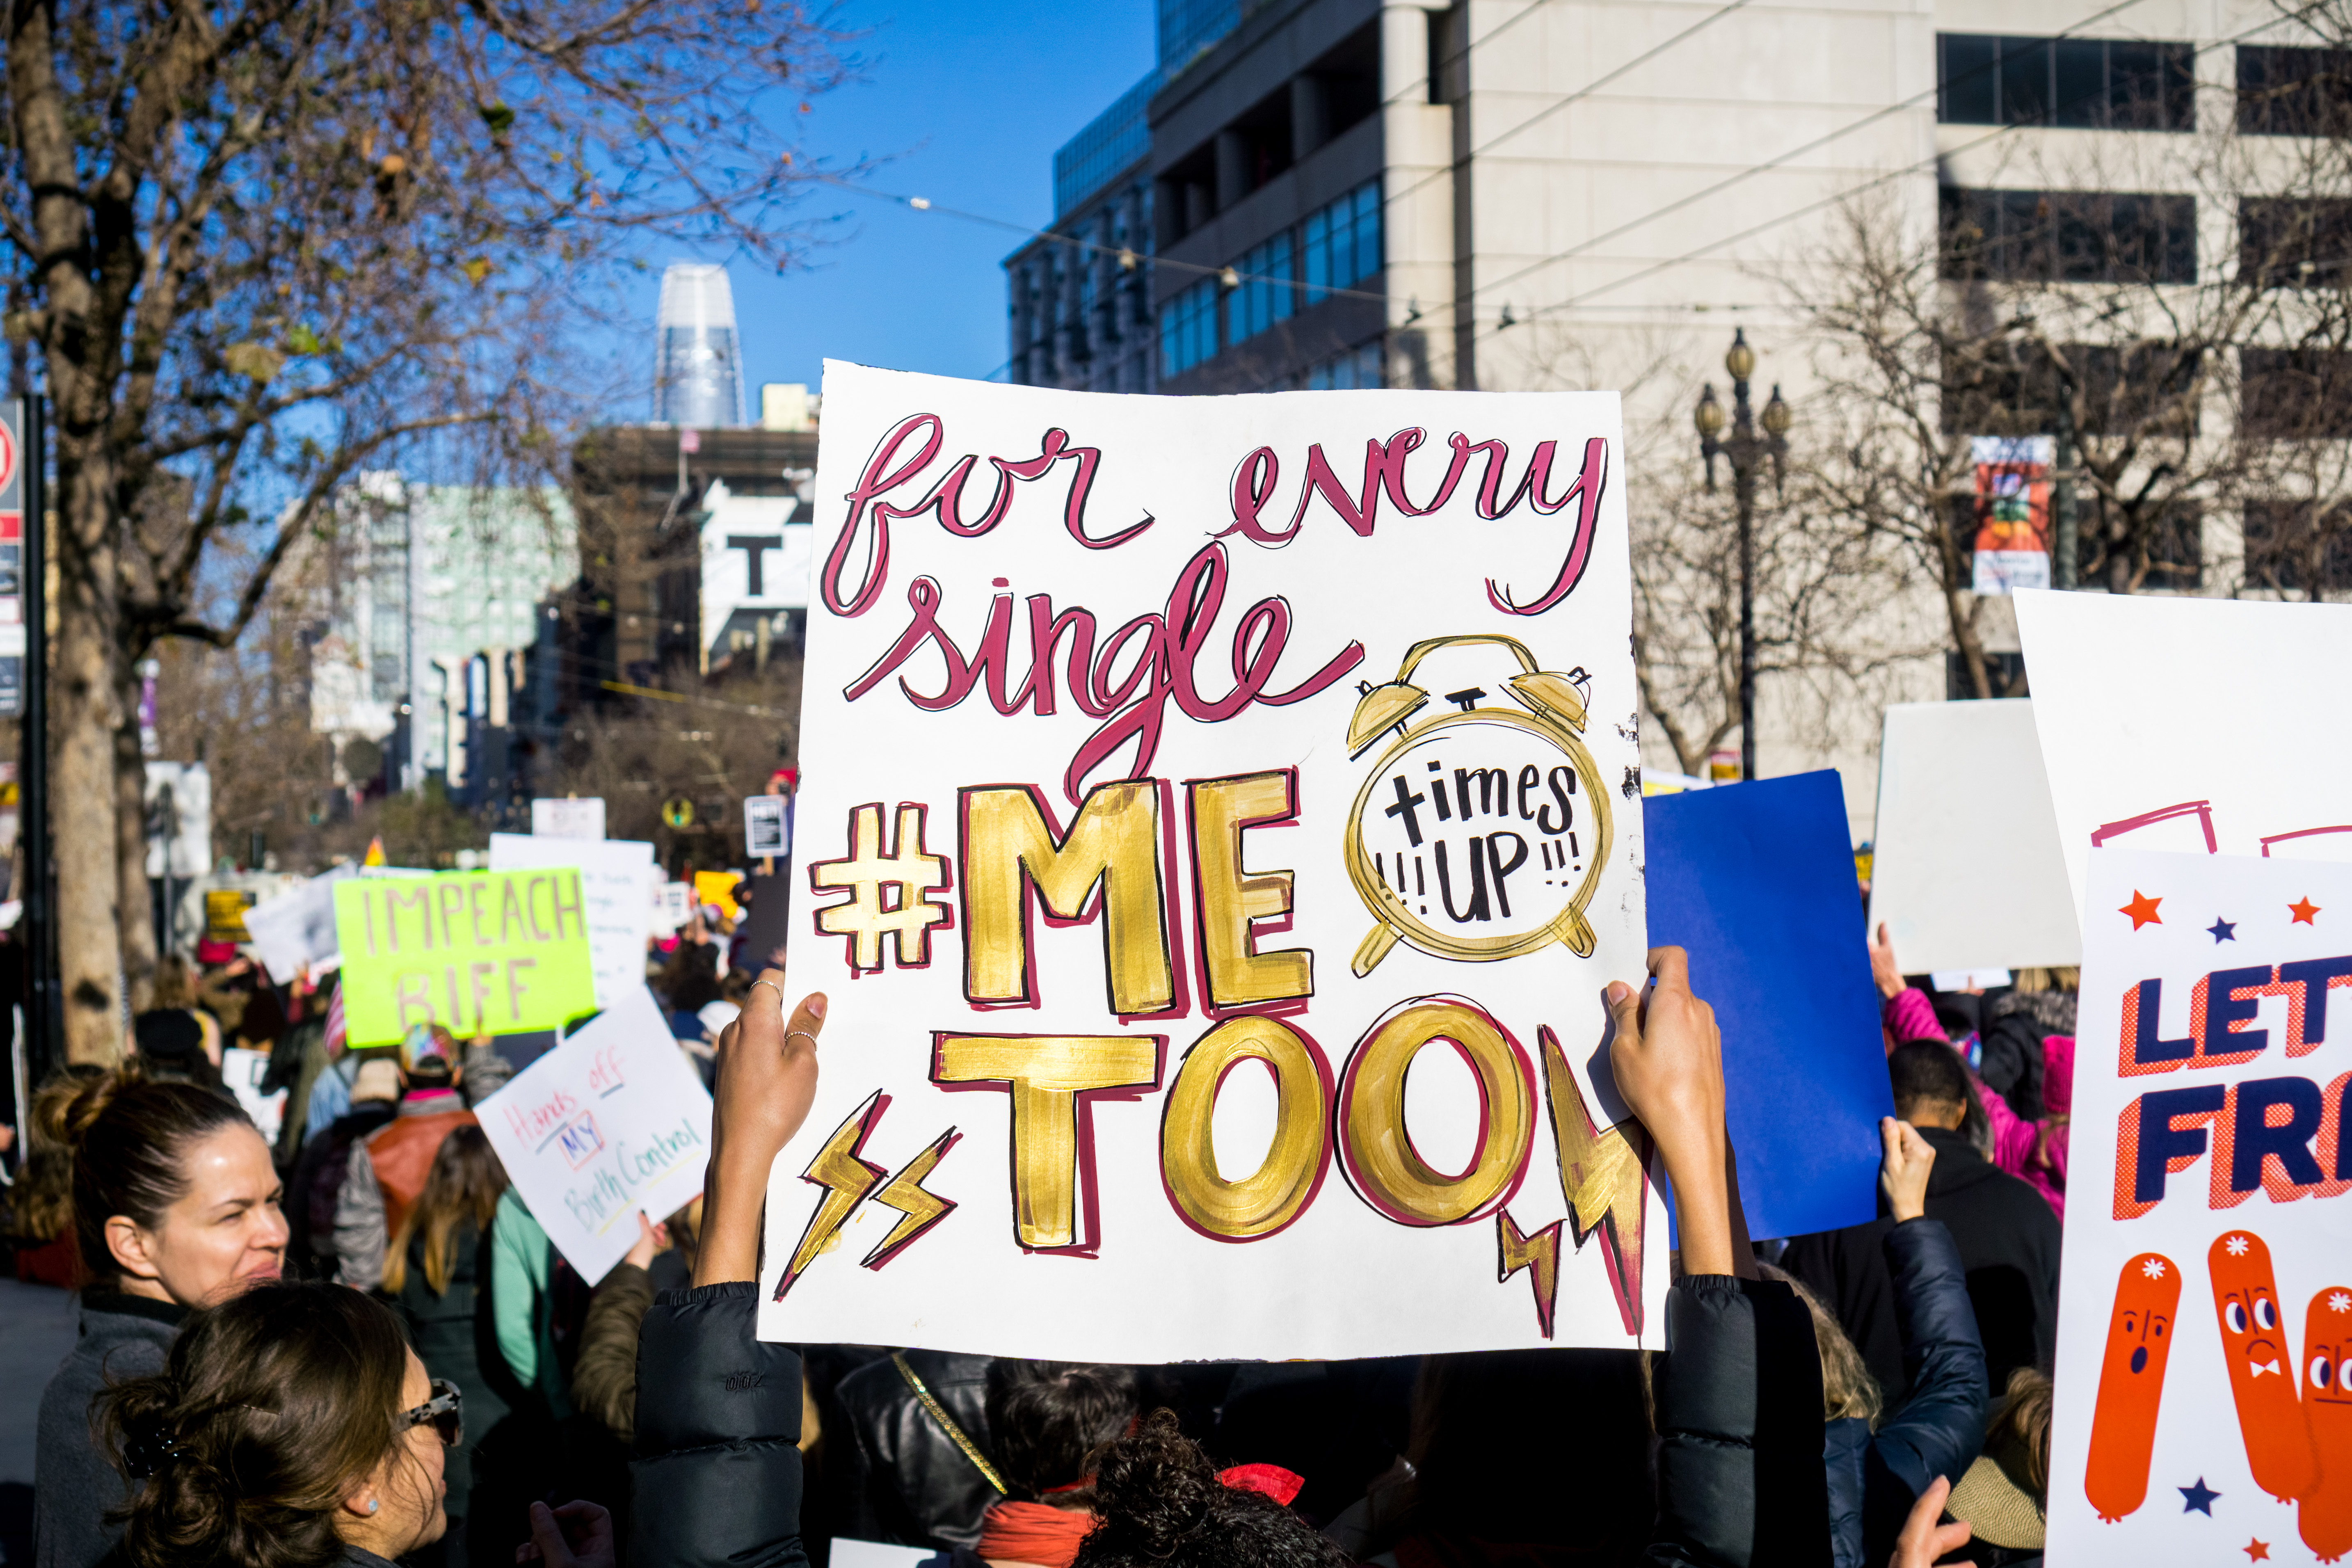 for every
single
#ME
times
!!! UP !!!
TOO
IMPEACH
BIFF
Hands off
MY
Birth Control
T
LET
FR